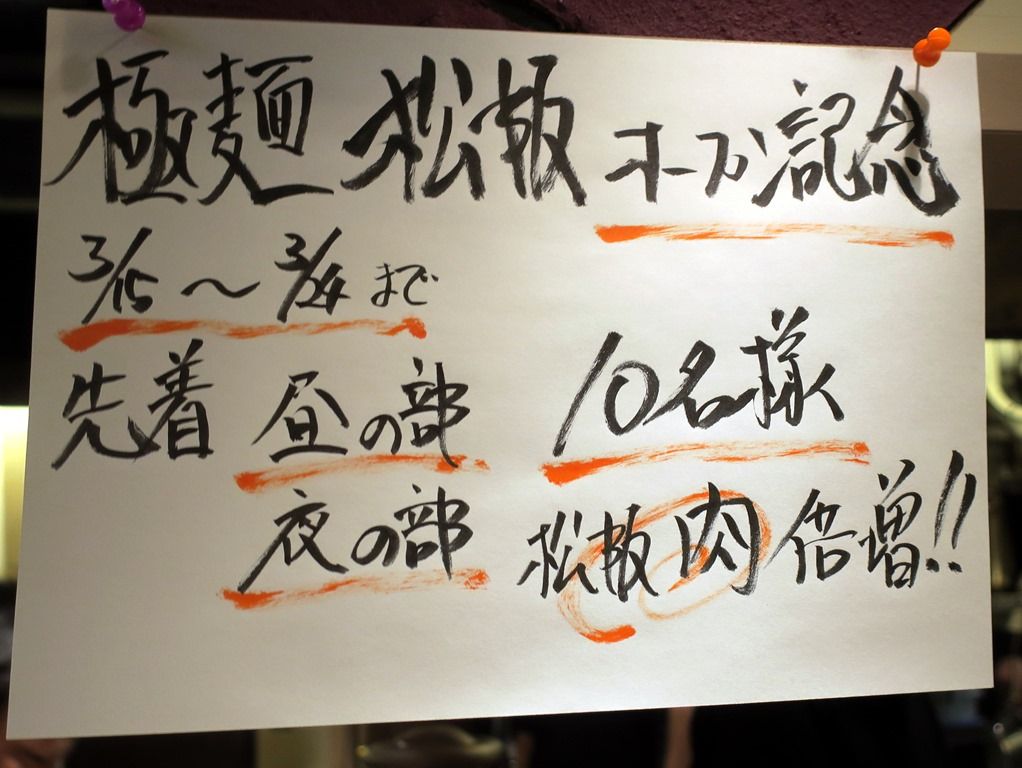 極麺 松板 オープン記念
3/15～3/24まで
先着 昼の部 10名様
夜の部 松板肉倍増!!